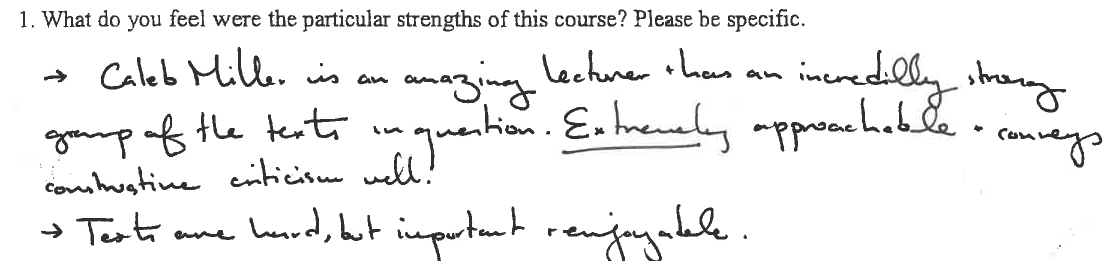 1. What do you feel were the particular strengths of this course? Please be specific.
→ Caleb Miller is an amazing lecturer + has an incredibly strong
grasp of the texts in question. Extremely approachable + conveys
constructive criticism well!
→ Texts are hard, but important + enjoyable.